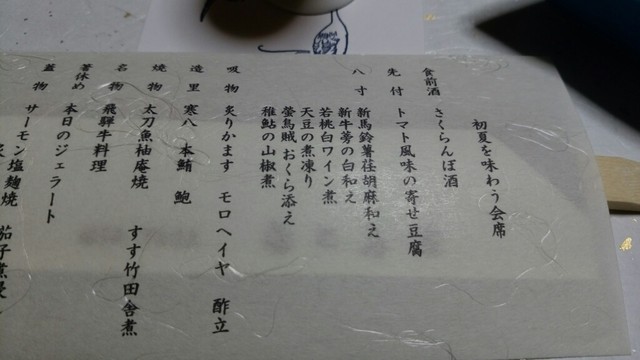 初夏を味わう会席
食前酒 さくらんぼ酒
先付 トマト風味の寄せ豆腐
八寸 新馬鈴薯荏胡麻和え
新牛蒡の白和え
若桃白ワイン煮
天豆の煮凍り
蛍烏賊おくら添え
稚鮎の山椒煮
吸物 炙りかます モロヘイヤ 酢立
造里 寒八 本鮪 鮑
焼物 太刀魚柚庵焼 すす竹田舎煮
名物 飛騨牛料理
箸休め 本日のジェラート
蓋物 サーモン塩麹焼
茄子煮